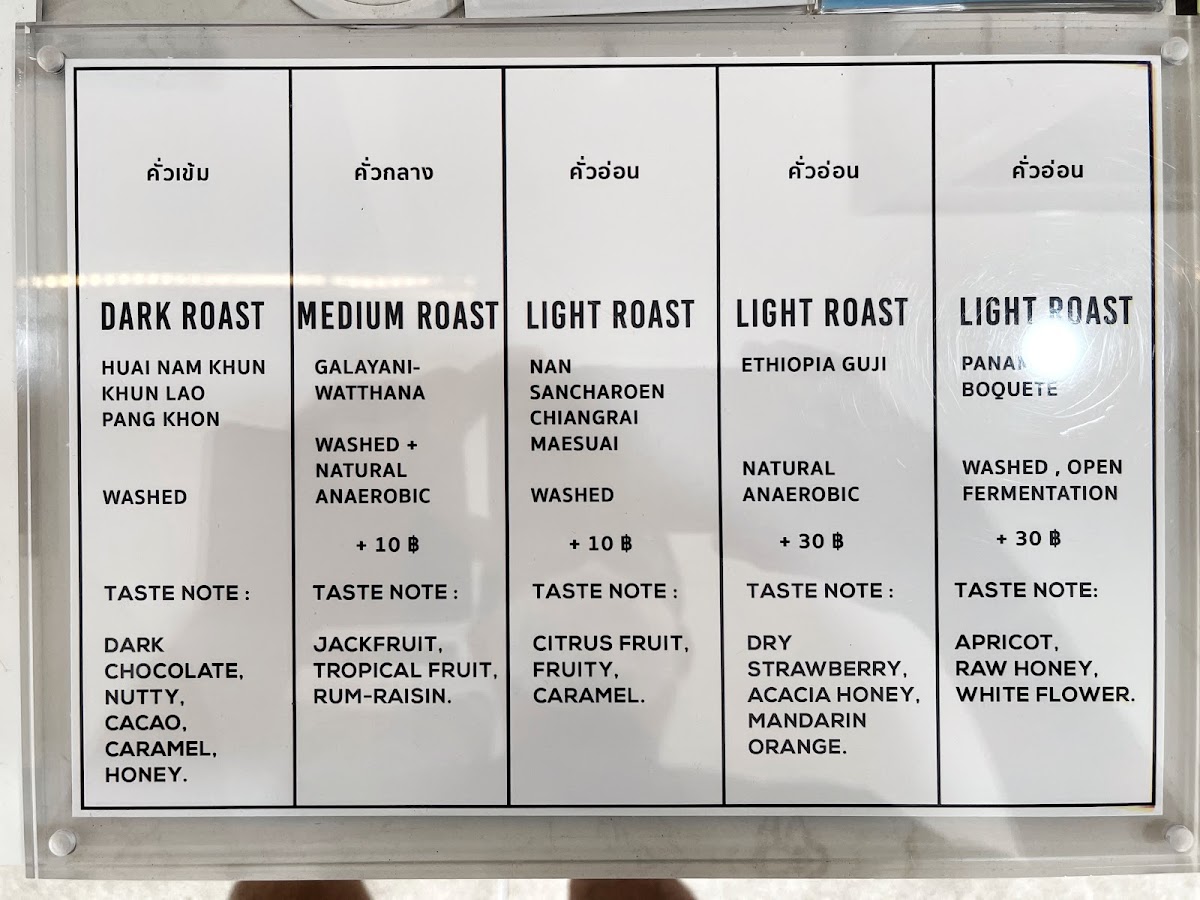 คั่วเข้ม
DARK ROAST
HUAI NAM KHUN
KHUN LAO
PANG KHON
WASHED
TASTE NOTE :
DARK
CHOCOLATE,
NUTTY,
CACAO,
CARAMEL,
HONEY.
คั่วกลาง
MEDIUM ROAST
GALAYANI-
WATTHANA
WASHED +
NATURAL
ANAEROBIC
+ 10 ฿
TASTE NOTE :
JACKFRUIT,
TROPICAL FRUIT,
RUM-RAISIN.
คั่วอ่อน
LIGHT ROAST
NAN
SANCHAROEN
CHIANGRAI
MAESUAI
WASHED
+ 10 ฿
TASTE NOTE :
CITRUS FRUIT,
FRUITY,
CARAMEL.
คั่วอ่อน
LIGHT ROAST
ETHIOPIA GUJI
NATURAL
ANAEROBIC
+ 30 ฿
TASTE NOTE :
DRY
STRAWBERRY,
ACACIA HONEY,
MANDARIN
ORANGE.
คั่วอ่อน
LIGHT ROAST
BOQUETE
WASHED , OPEN
FERMENTATION
+ 30 ฿
TASTE NOTE:
APRICOT,
RAW HONEY,
WHITE FLOWER.